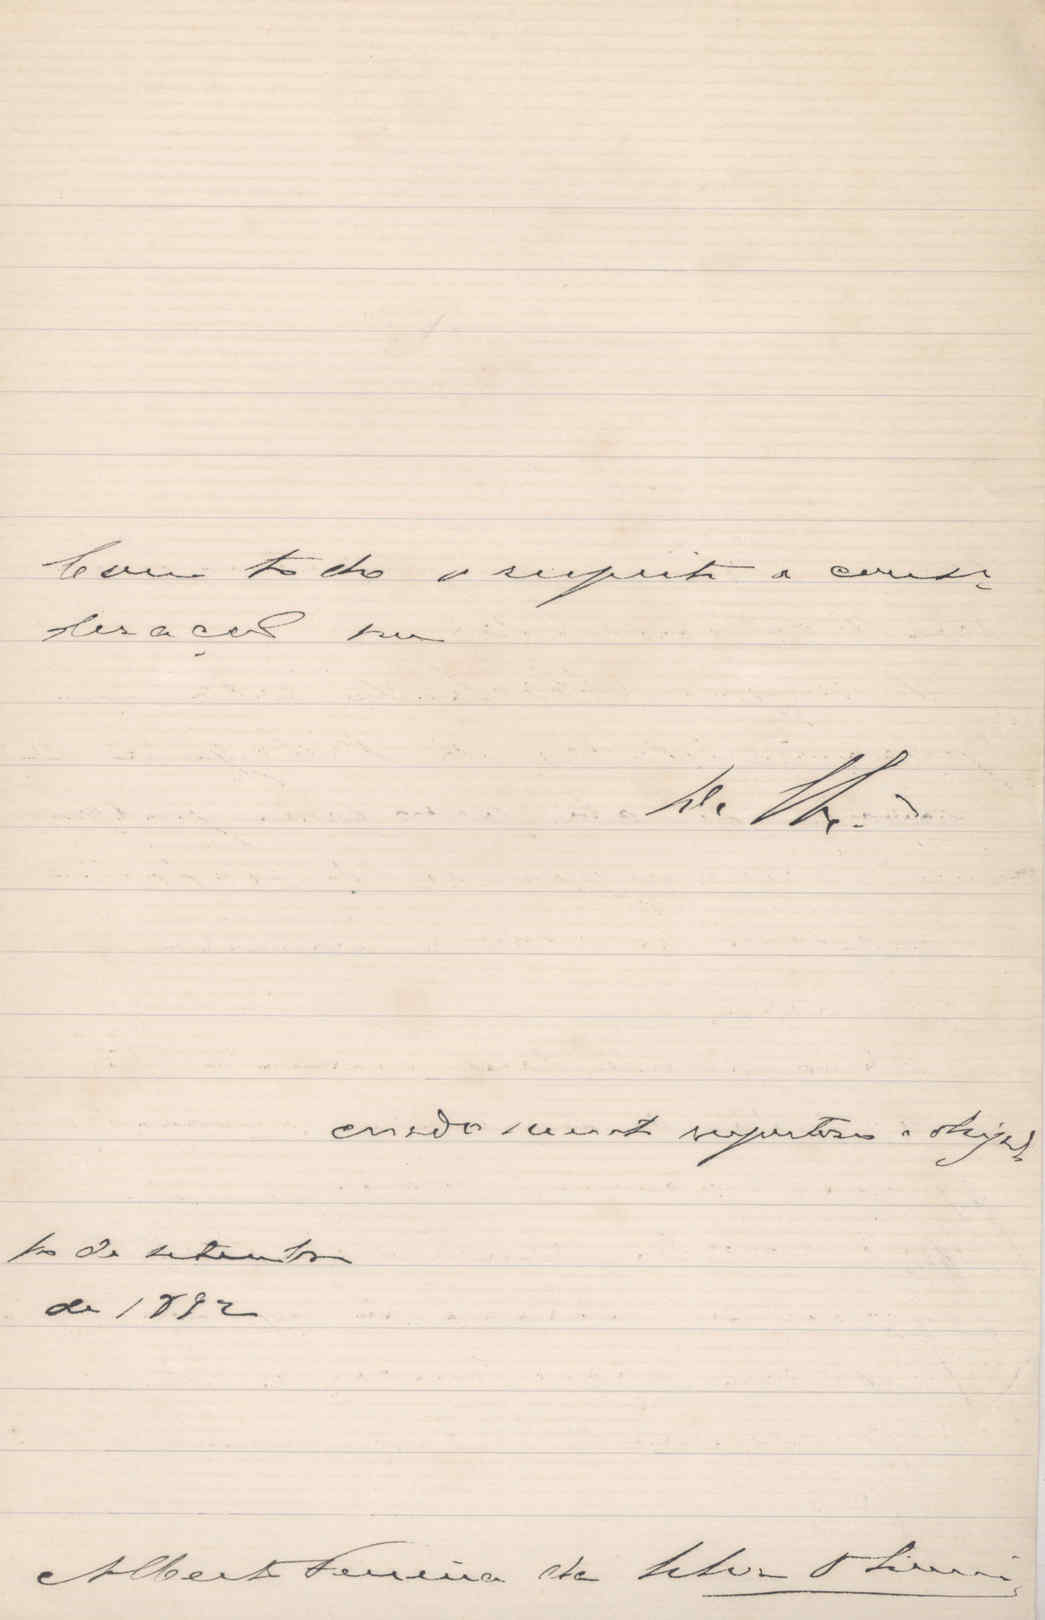 Com todo o respeito e consi-
deração sou
De V. Ex.ª
criado muito respeitoso e obrig.do
de setembro
de 1892
Alberto Ferreira da Silva Oliveira